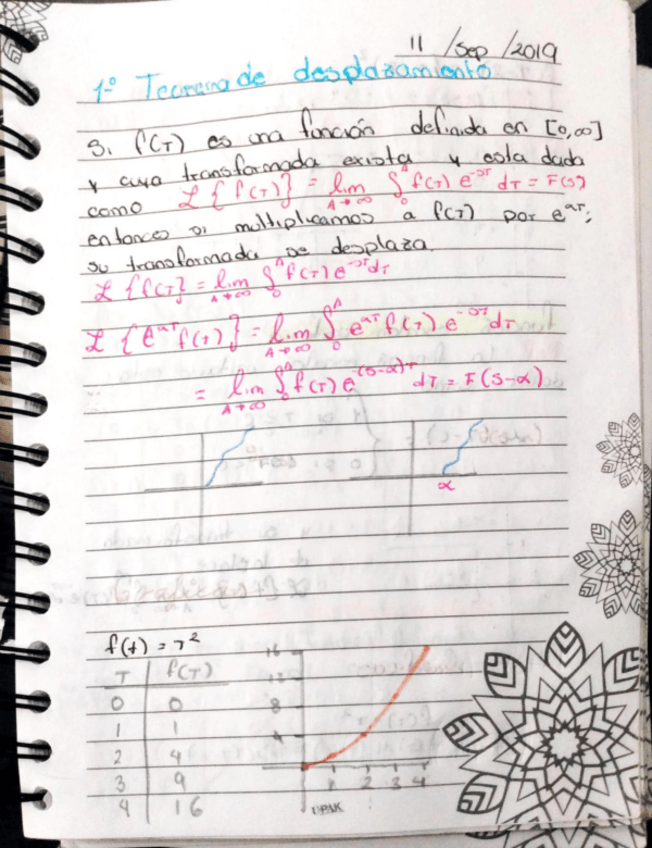 11 / Sep / 2019
1º Teorema de desplazamiento
Si f(T) es una función definida en [0,∞]
y cuya transformada exista y esta dada
como ℒ{f(T)} = lim A→∞ ∫₀ᴬ f(T) e^-ST dT = F(S)
entonces si multiplicamos a f(T) por e^αT;
su transformada se desplaza.
ℒ{f(T)} = lim A→∞ ∫₀ᴬ f(T) e^-ST dT
ℒ{e^αT f(T)} = lim A→∞ ∫₀ᴬ e^αT f(T) e^-ST dT
= lim A→∞ ∫₀ᴬ f(T) e^-(S-α)T dT = F(S-α)
α
f(t) = T²
T f(T)
0 0
1 1
2 4
3 9
4 16
16
12
8
4
1 2 3 4